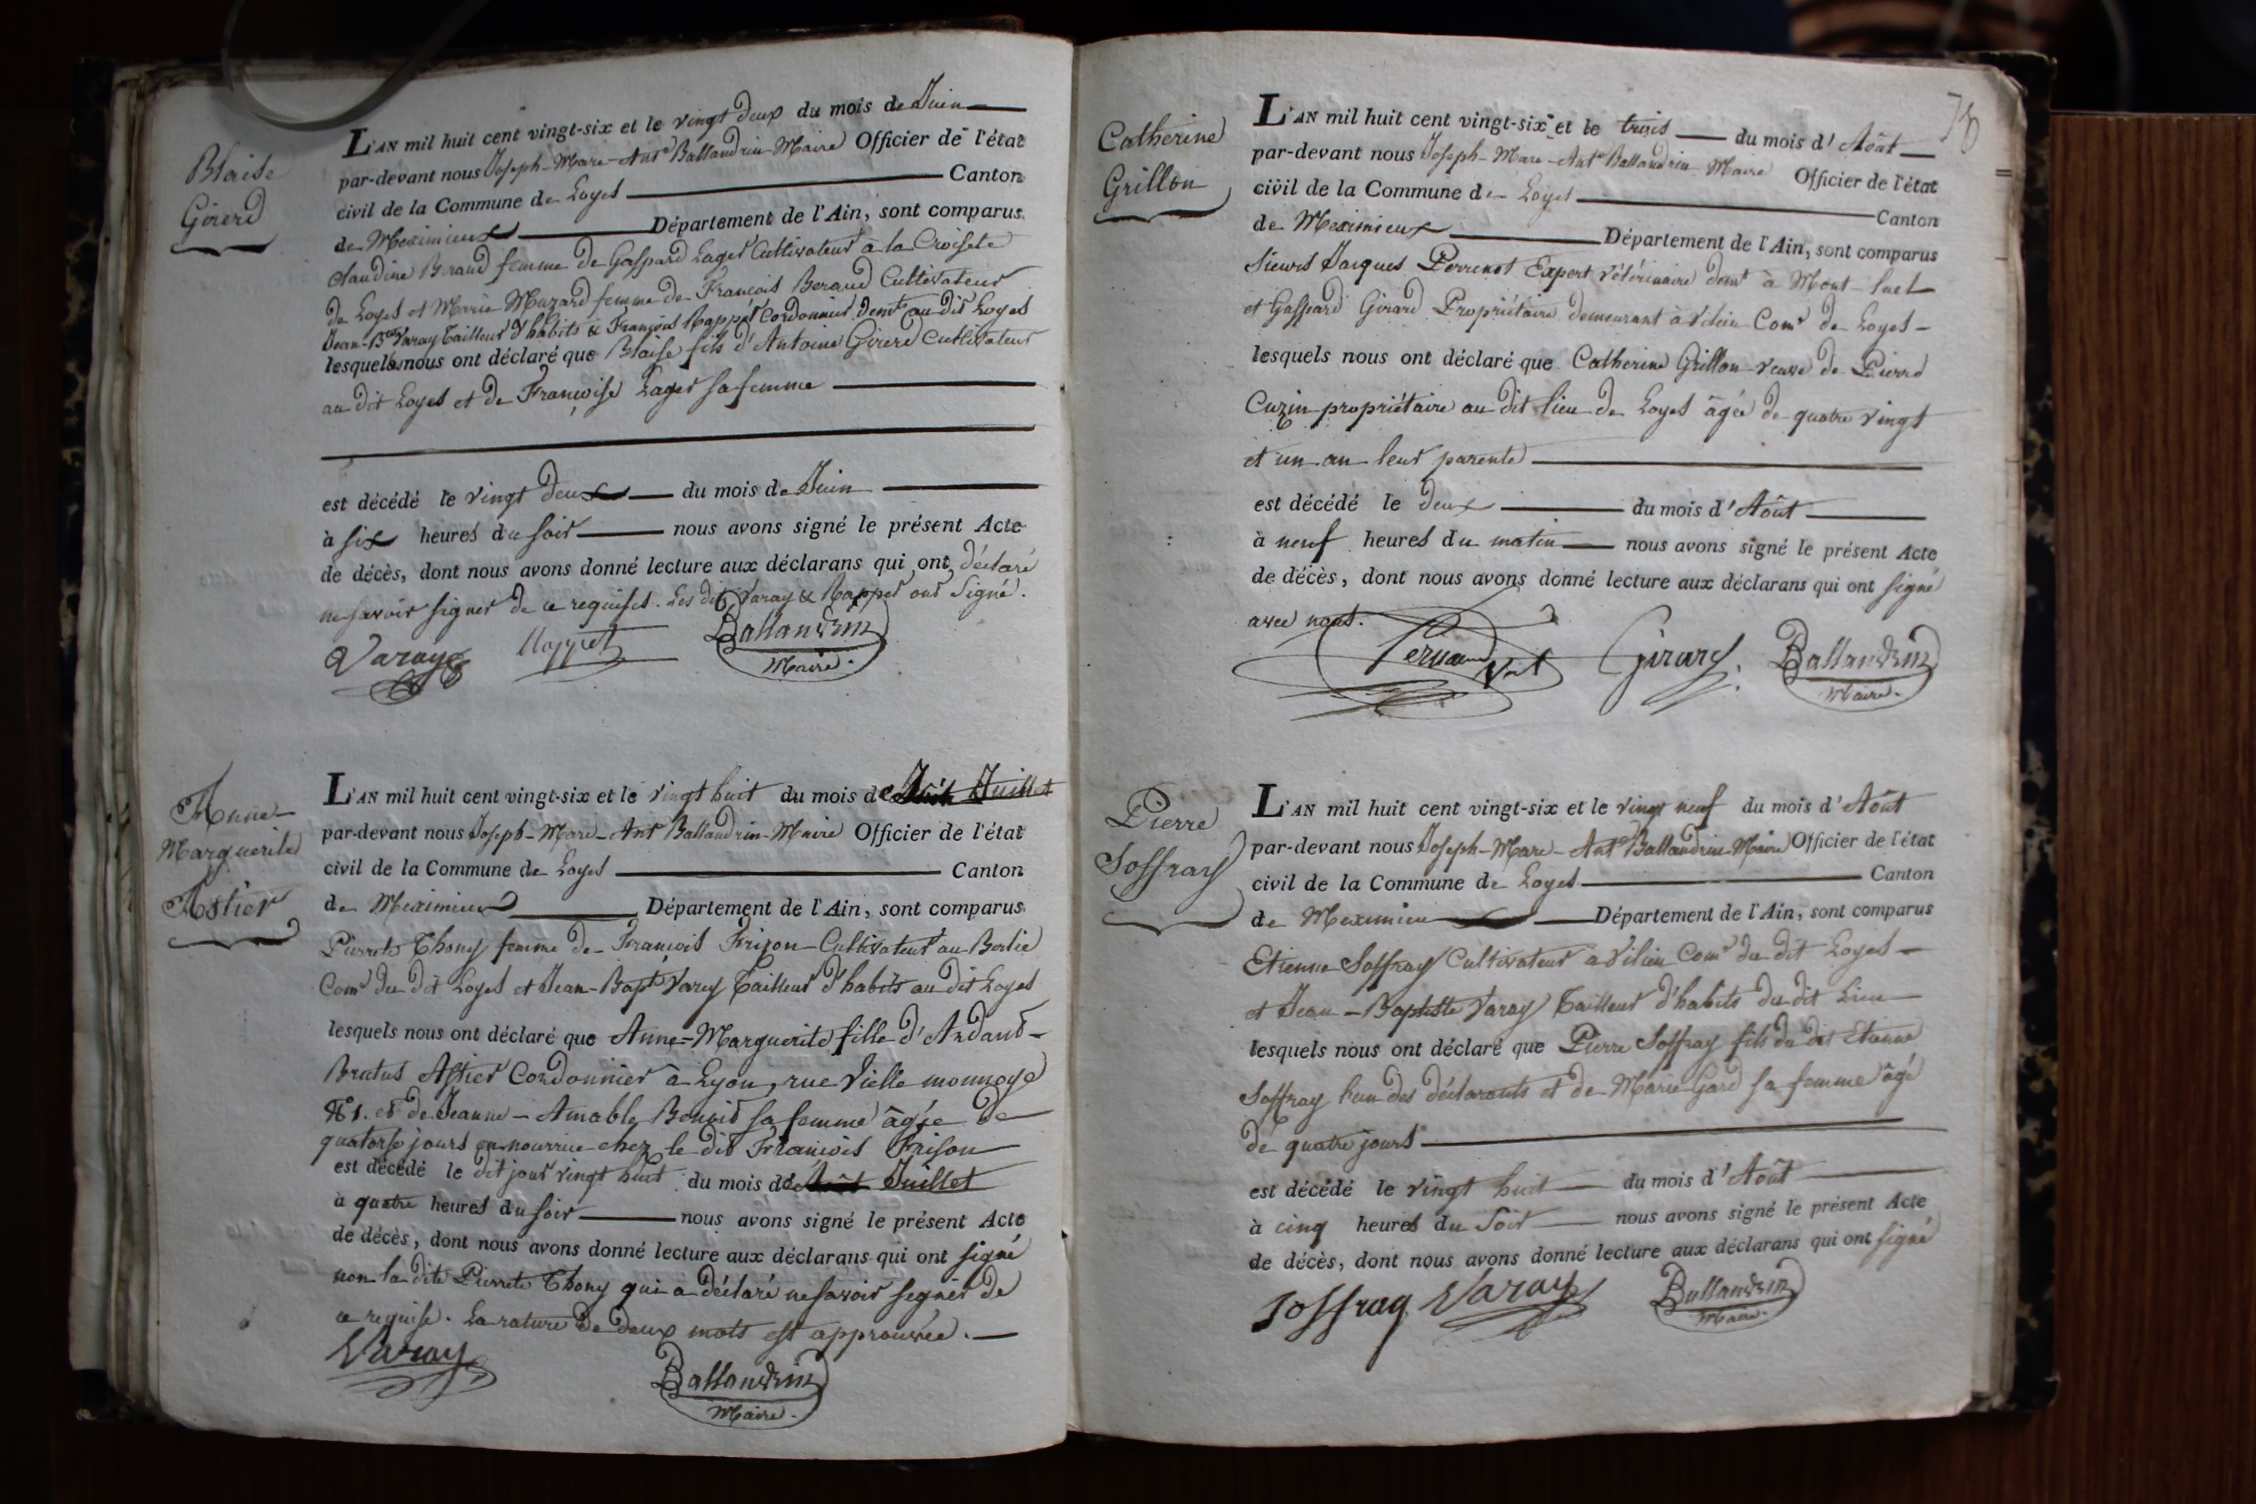 Blaise
Girerd
L'AN mil huit cent vingt-six et le vingt deux du mois de Juin
par-devant nous Joseph-Marc-Ant.e Ballandrin Maire Officier de l'état
civil de la Commune de Loyes Canton
de Meximieux Département de l'Ain, sont comparus
Claudine Beraud femme de Gaspard Lager Cultivateur à la Croisete
de Loyes et Marie Mazard femme de François Beraud Cultivateur
Jean-B.te Varay Tailleur d'habits & François Rappet Cordonnier dem.t au dit Loyes
lesquels nous ont déclaré que Blaise fils d'Antoine Girerd Cultivateur
au dit Loyes et de Françoise Lager sa femme
est décédé le vingt deux du mois de Juin
à six heures du soir nous avons signé le présent Acte
de décès, dont nous avons donné lecture aux déclarans qui ont déclaré
ne savoir signer de ce requises. Les dits Varay & Rappet ont Signé.
Varay Rappet Ballandrin
Maire.
Anne
Marguerite
Astier
L'AN mil huit cent vingt-six et le vingt huit du mois de Août Juillet
par-devant nous Joseph-Marc-Ant.e Ballandrin Maire Officier de l'état
civil de la Commune de Loyes Canton
de Meximieux Département de l'Ain, sont comparus
Pierrete Thony femme de François Frison Cultivateur au Berlie
Com.e du dit Loyes et Jean-Bap.t Varay Tailleur d'habits au dit Loyes
lesquels nous ont déclaré que Anne=Marguerite fille d'Ardand-
Brutus Astier Cordonnier à Lyon, rue Vielle monnoye
N° 1. et de Jeanne-Amable Benoid sa femme âgée de
quatorse jours en nourrice chez le dit François Frison
est décédé le dit jour vingt huit du mois de Août Juillet
à quatre heures du soir nous avons signé le présent Acte
de décès, dont nous avons donné lecture aux déclarans qui ont signé
non la dite Pierrete Thony qui a déclaré ne savoir signer de
ce requise. La rature de deux mots est approuvée.
Varay Ballandrin
Maire.
78
Catherine
Grillon
L'AN mil huit cent vingt-six et le trois du mois d'Août
par-devant nous Joseph-Marc-Ant.e Ballandrin Maire Officier de l'état
civil de la Commune de Loyes Canton
de Meximieux Département de l'Ain, sont comparus
Sieurs Jacques Perrenot Expert vétérinaire dem.t à Mont-luel
et Gaspard Girard Propriétaire demeurant à Vilieu Com.e de Loyes
lesquels nous ont déclaré que Catherine Grillon veuve de Pierre
Cuzin propriétaire au dit lieu de Loyes âgée de quatre vingt
et un an leur parente
est décédé le deux du mois d'Août
à neuf heures du matin nous avons signé le présent Acte
de décès, dont nous avons donné lecture aux déclarans qui ont signé
avec nous.
Girard Ballandrin
Maire.
Pierre
Soffray
L'AN mil huit cent vingt-six et le vingt neuf du mois d'Août
par-devant nous Joseph-Marc-Ant.e Ballandrin Maire Officier de l'état
civil de la Commune de Loyes Canton
de Meximieu Département de l'Ain, sont comparus
Etienne Soffray Cultivateur à Vilieu Com.e du dit Loyes
et Jean-Baptiste Varay Tailleur d'habits du dit Lieu
lesquels nous ont déclaré que Pierre Soffray fils du dit Etienne
Soffray l'un des déclarants et de Marie Gard sa femme âgé
de quatre jours
est décédé le vingt huit du mois d'Août
à cinq heures du Soir nous avons signé le présent Acte
de décès, dont nous avons donné lecture aux déclarans qui ont signé
Soffray Varay Ballandrin
Maire.